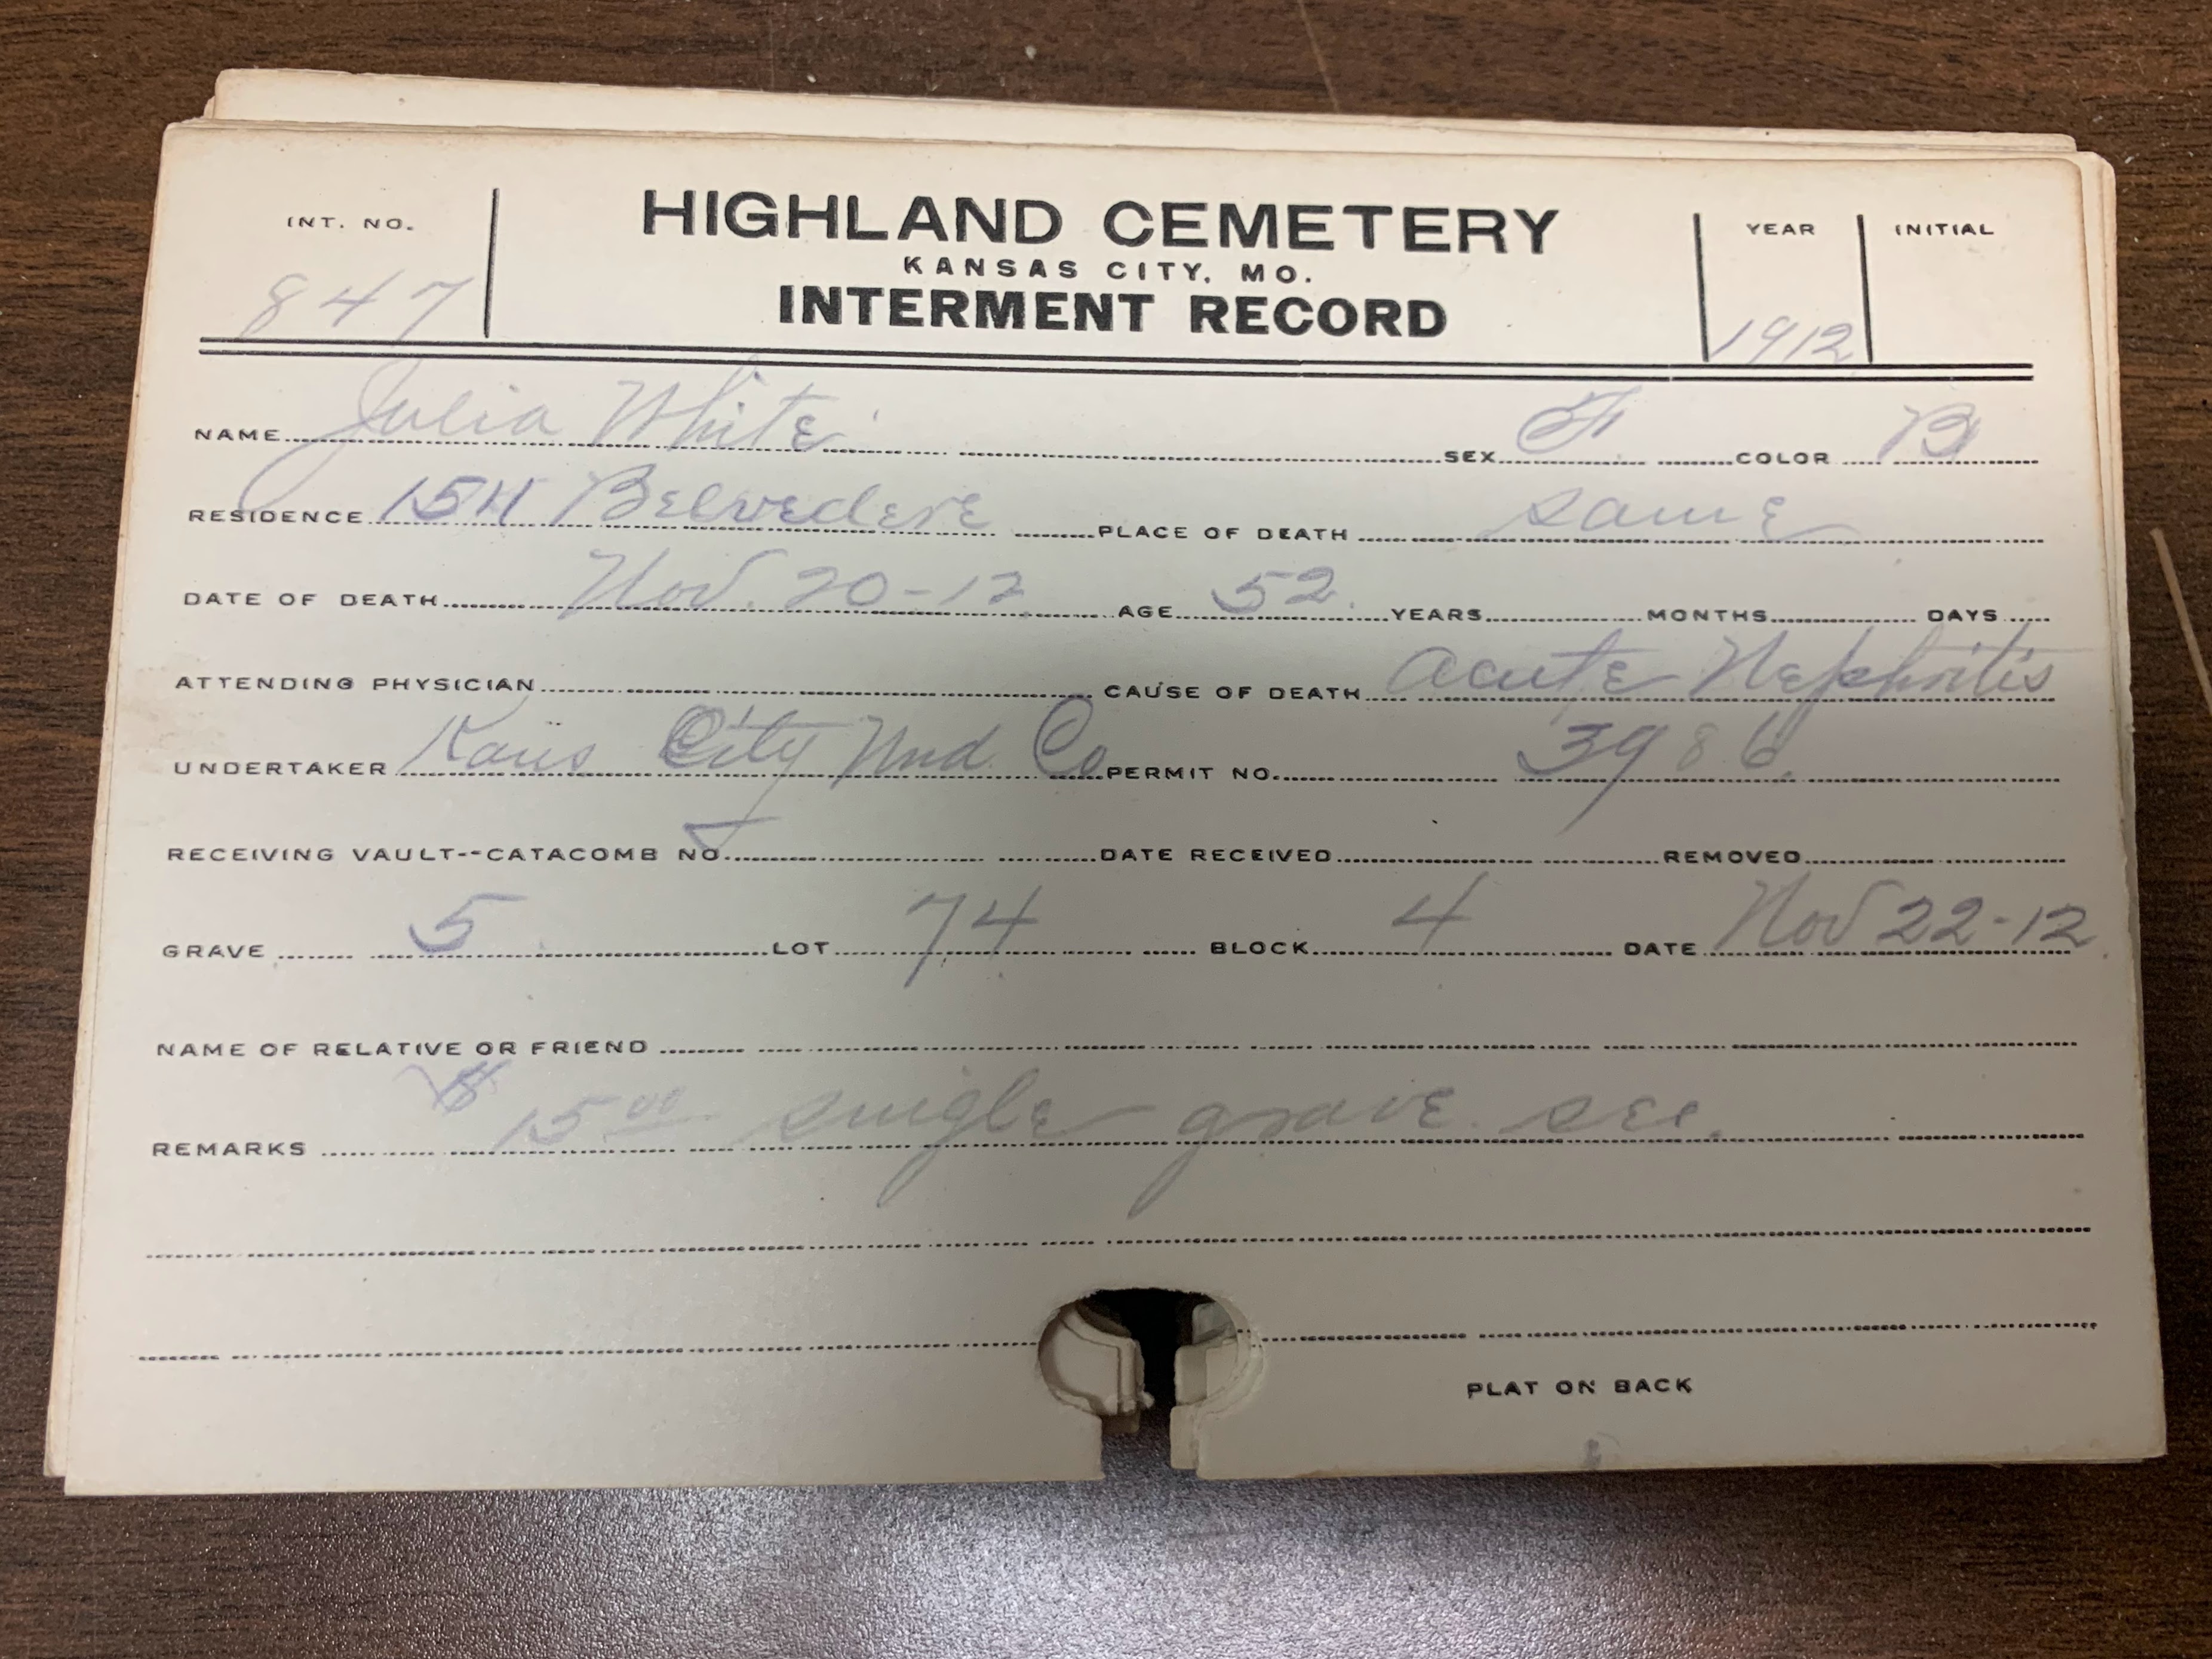 INT. NO. HIGHLAND CEMETERY YEAR INITIAL
KANSAS CITY, MO.
847 INTERMENT RECORD 1912
NAME Julia White SEX F. COLOR B
RESIDENCE Belvedere PLACE OF DEATH same
DATE OF DEATH Nov. 20-12 AGE 52 YEARS MONTHS DAYS
ATTENDING PHYSICIAN CAUSE OF DEATH acute Nephritis
UNDERTAKER Kans City Und. Co PERMIT NO. 3986
RECEIVING VAULT--CATACOMB NO. DATE RECEIVED REMOVED
GRAVE 5 LOT 74 BLOCK 4 DATE Nov 22-12
NAME OF RELATIVE OR FRIEND
REMARKS $15 00 single grave sec.
PLAT ON BACK